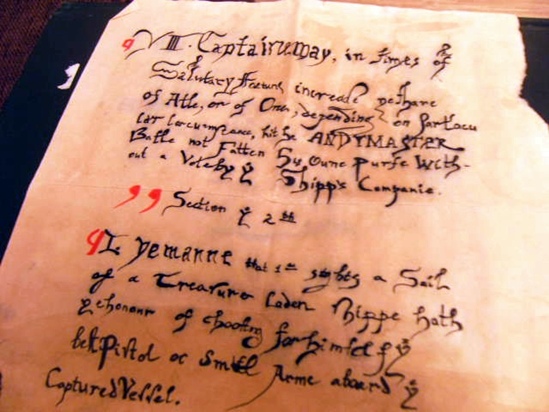 VIII. Captain may, in times of
Salutary Feature increase ye share
of Alle, or of One, depending on Particu
lar Circumstance, but he ANDYMASTER
Batle not Fatten hys owne purse with-
out a Vote by ye Shipp's Companie.
Section ye 2nd
I. Ye manne that 1st sights a Sail
of a Treasure laden Shippe hath
ye honour of choosing for himself ye
best Pistol or Small Arme aboard ye
Captured Vessel.